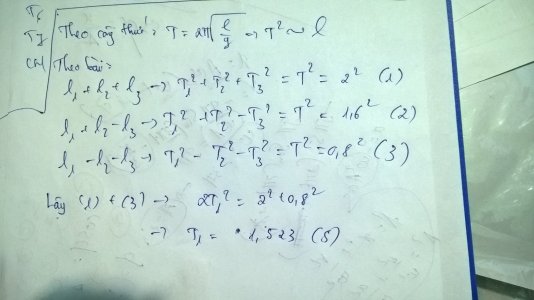 Theo công thức: T = 2π√(l/g) → T² ~ l
Theo bài:
l₁ + l₂ + l₃ → T₁² + T₂² + T₃² = T² = 2² (1)
l₁ + l₂ - l₃ → T₁² + T₂² - T₃² = T² = 1,6² (2)
l₁ - l₂ - l₃ → T₁² - T₂² - T₃² = T² = 0,8² (3)
Lấy (1) + (3) → 2T₁² = 2² + 0,8²
→ T₁ = 1,523 (5)